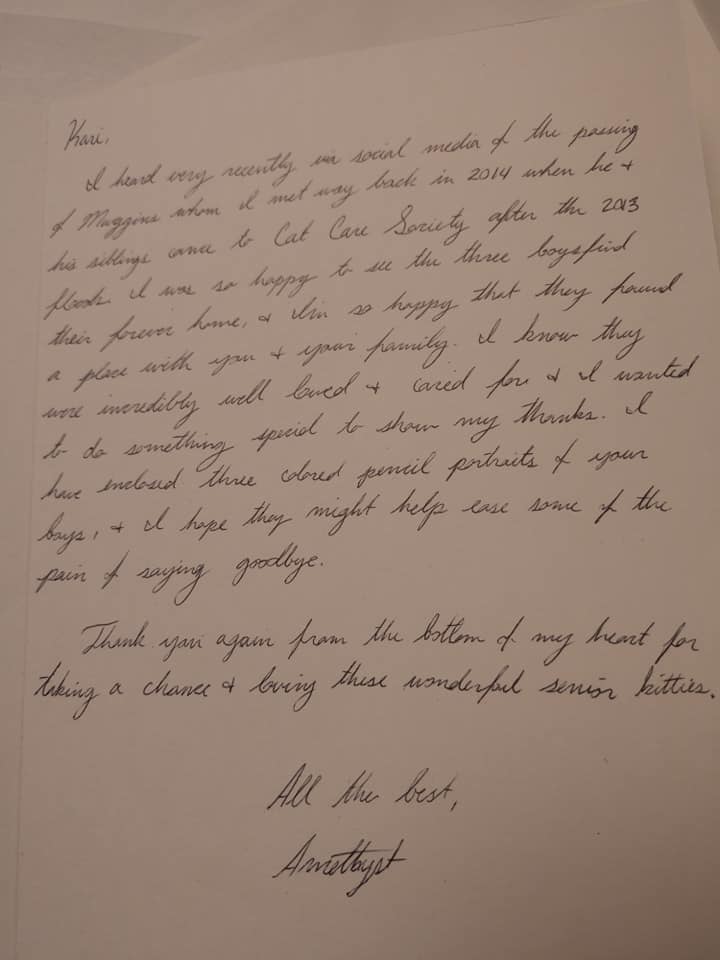 Kari,
I heard very recently via social media of the passing
of Muggins whom I met way back in 2014 when he +
his siblings came to Cat Care Society after the 2013
floods. I was so happy to see the three boys find
their forever home, + I'm so happy that they found
a place with you + your family. I know they
were incredibly well loved + cared for + I wanted
to do something special to show my thanks. I
have enclosed three colored pencil portraits of your
boys, + I hope they might help ease some of the
pain of saying goodbye.
Thank you again from the bottom of my heart for
taking a chance + loving these wonderful senior kitties.
All the best,
Amethyst